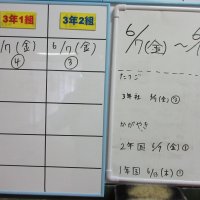 3年1組 3年2組
6/7(金) 6/7(金)
④ ③
6/7(金)〜6/
たんご
3年社 6/7(金)③
かがやき
2年国 6/7(金)①
1年国 6/13(木)①